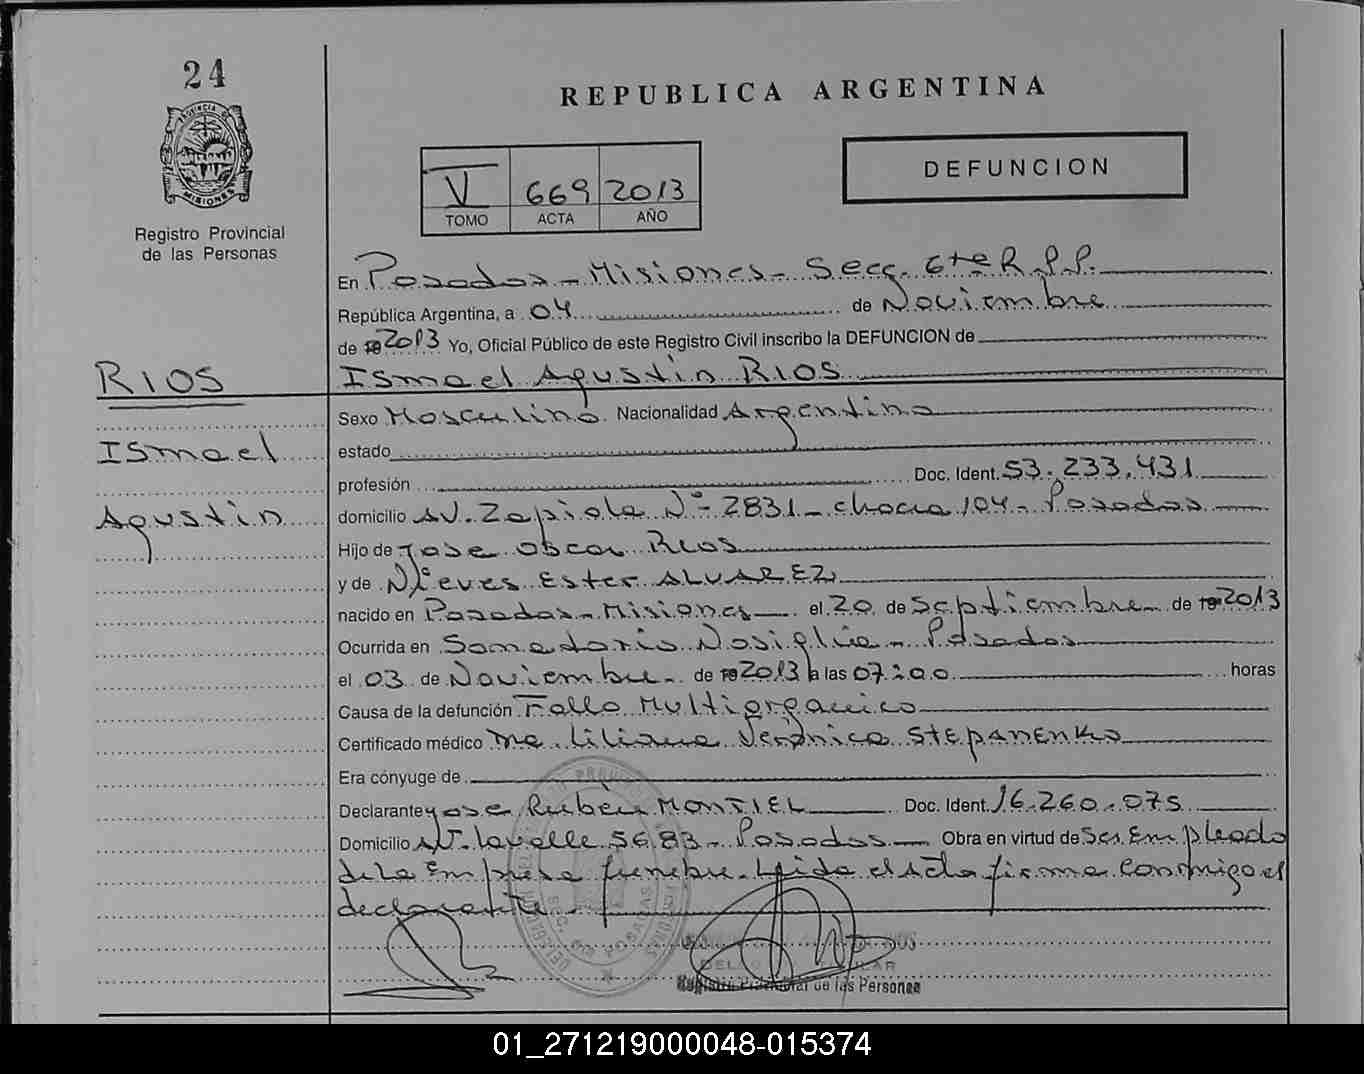 24
PROVINCIA DE
MISIONES
Registro Provincial
de las Personas
REPUBLICA ARGENTINA
V 669 2013
TOMO ACTA AÑO
DEFUNCION
En Posadas - Misiones - Secc. 6ta R.P.P.
República Argentina, a 04 de Noviembre
de 19 2013 Yo, Oficial Público de este Registro Civil inscribo la DEFUNCION de
RIOS
Ismael Agustin RIOS
Ismael
Agustin
Sexo Masculino Nacionalidad Argentina
estado
profesión Doc. Ident. 53.233.431
domicilio AV. Zapiola Nº 2831 - chacra 104 - Posadas
Hijo de Jose Oscar Rios
y de Nieves Ester ALVAREZ
nacido en Posadas - Misiones el 20 de Septiembre de 19 2013
Ocurrida en Sanatorio Nosiglia - Posadas
el 03 de Noviembre de 19 2013 a las 07:00 horas
Causa de la defunción Fallo Multiorganico
Certificado médico Ma. Liliana Veronica STEPANENKO
Era cónyuge de
Declarante Jose Ruben MONTIEL Doc. Ident. 16.260.075
Domicilio AV. Lavalle 5683 - Posadas Obra en virtud de Ser Empleado
de la Empresa funebre. Leida el Acta firma conmigo el
declarante
Registro Provincial de las Personas
01_271219000048-015374